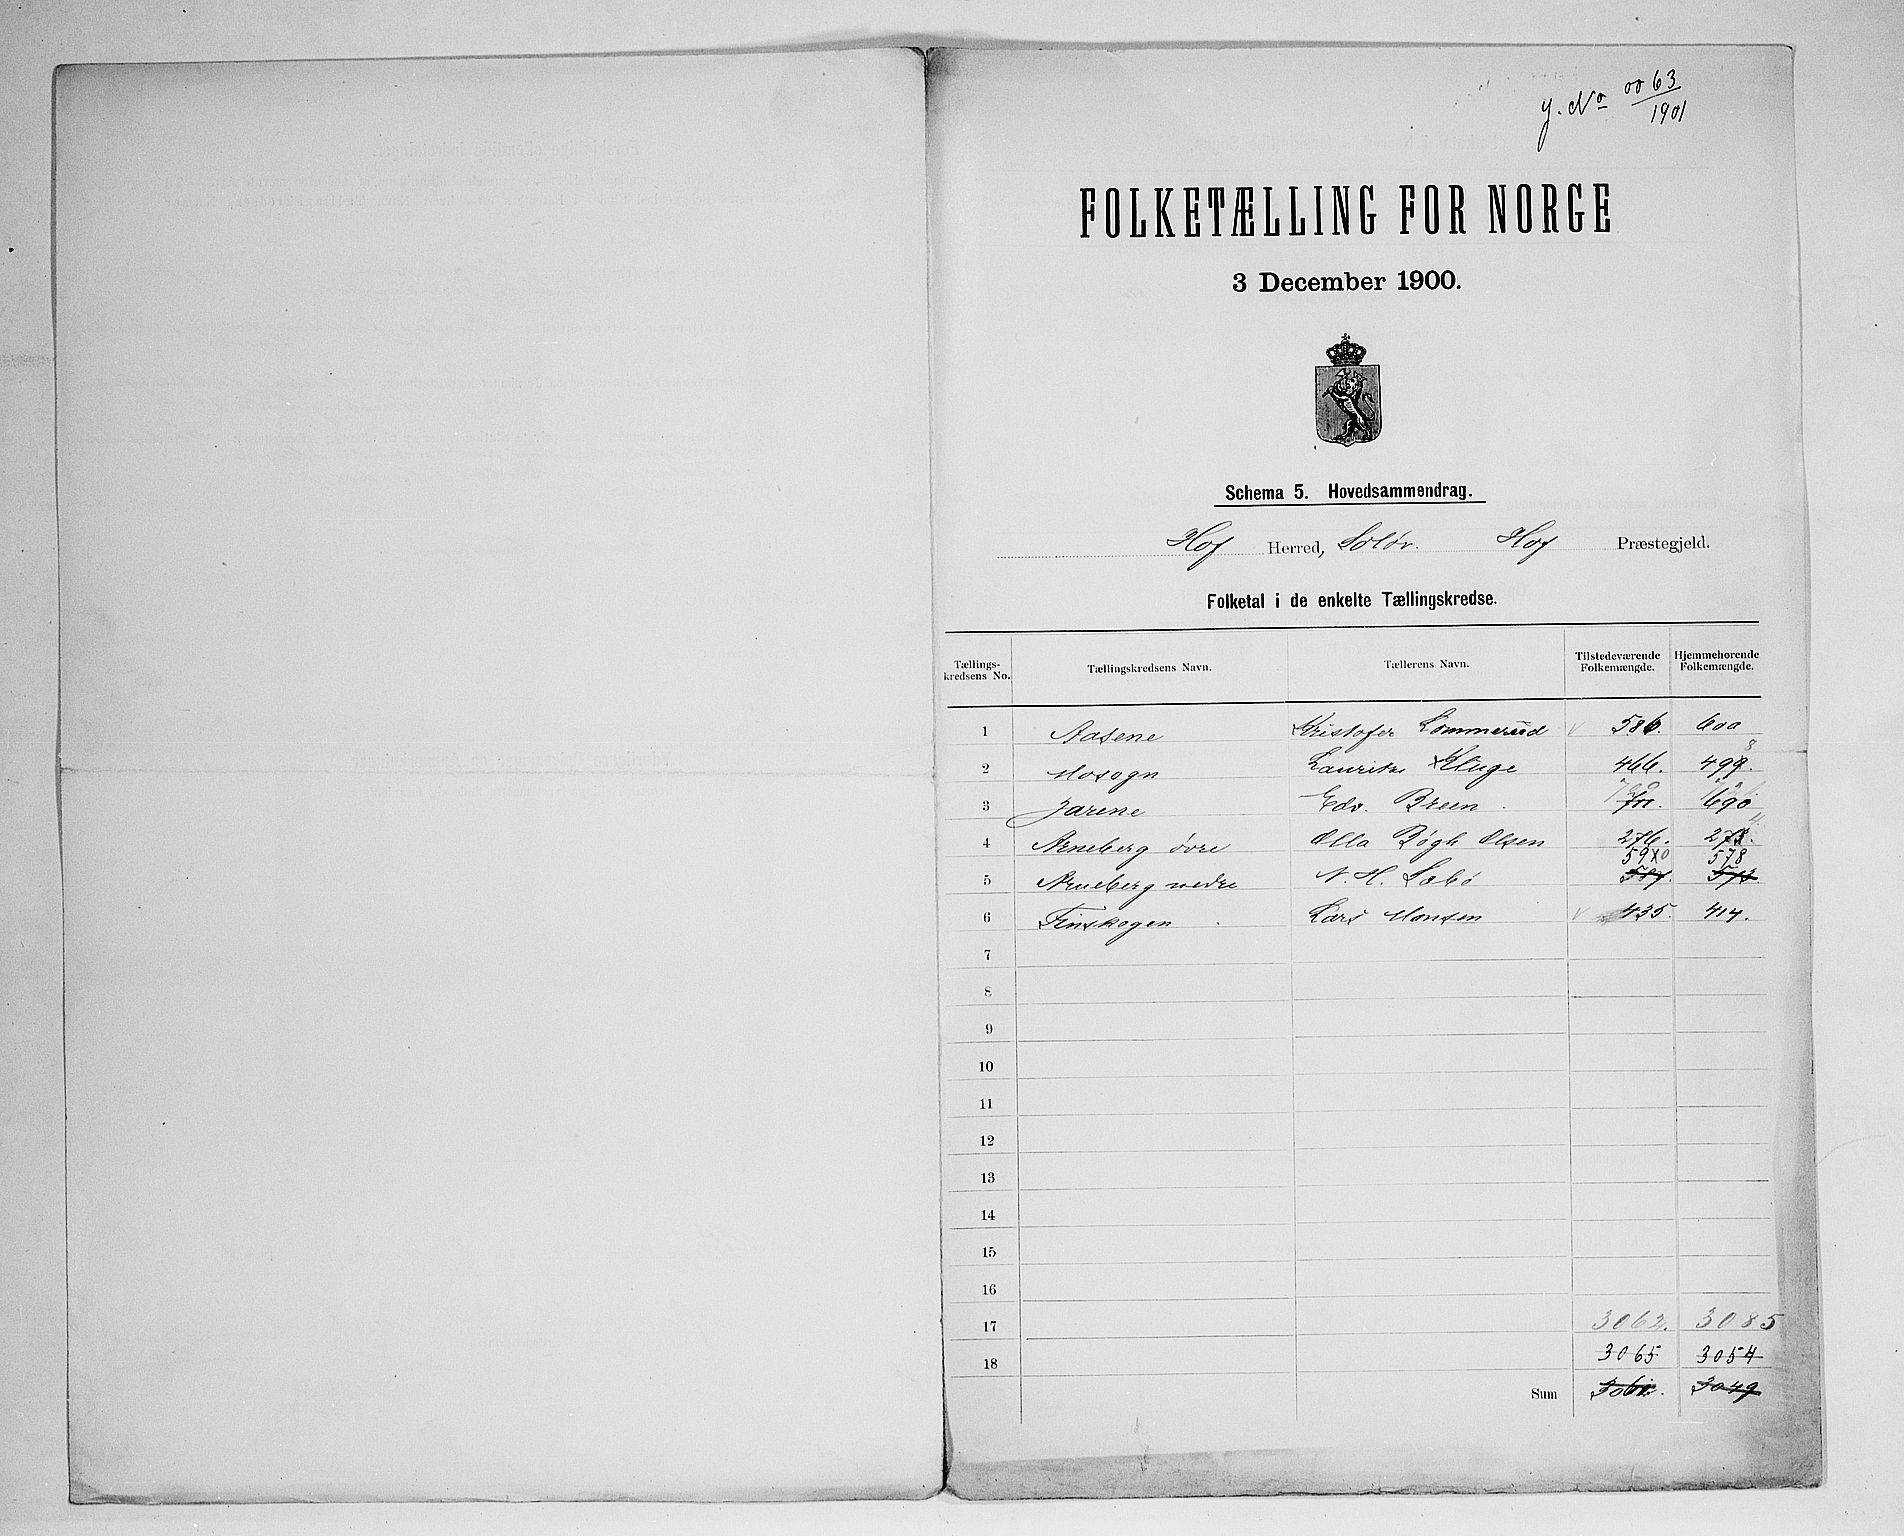 J. No 0063/1901
FOLKETÆLLING FOR NORGE
3 December 1900.
Schema 5. Hovedsammendrag.
Hof Herred, Solør. Hof Præstegjeld.
Folketal i de enkelte Tællingskredse.
Tællings-kredsens No. Tællingskredsens Navn. Tællerens Navn. Tilstedeværende Folkemængde. Hjemmehørende Folkemængde.
1 Aasene Kristofer Lommerud 586. 600
2 Mosogn Lauritz Kluge 466. 499.
3 Jarene Edv. Breen 690
4 Arneberg övre Olla Bögh Olsen 276. 273.
590 578
5 Arneberg nedre N. H. Sæbö 587. 573.
6 Finskogen Lars Monsen 435. 414.
7
8
9
10
11
12
13
14
15
16
17 3062. 3085
18 3065 3054
Sum 3049